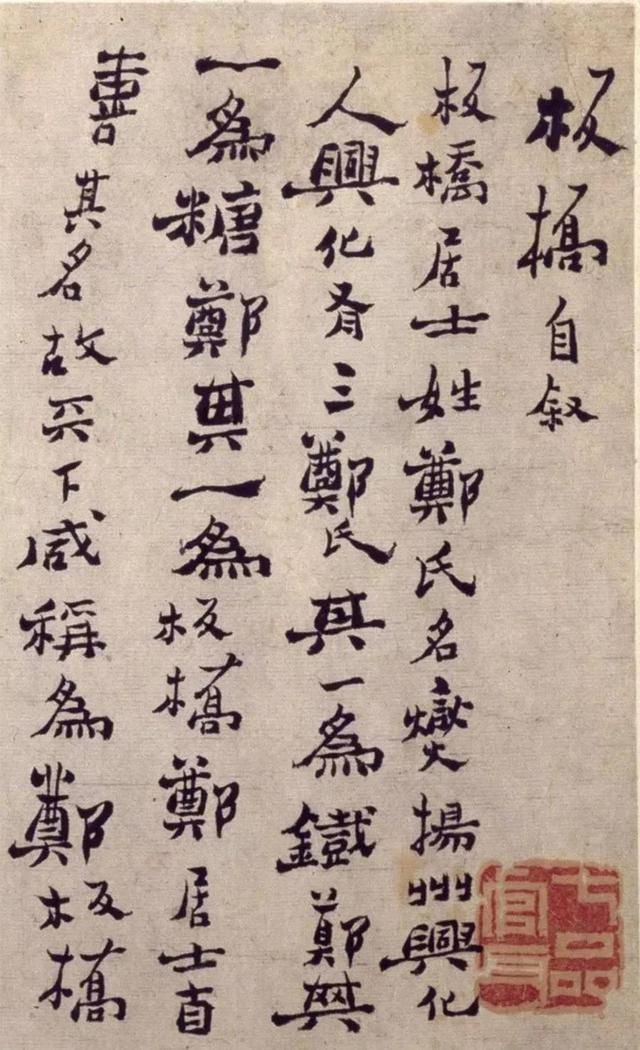 板橋自叙
板橋居士姓鄭氏名燮揚州興化
人興化有三鄭氏其一為鐵鄭其
一為糖鄭其一為板橋鄭居士自
喜其名故天下咸稱為鄭板橋
七品官耳